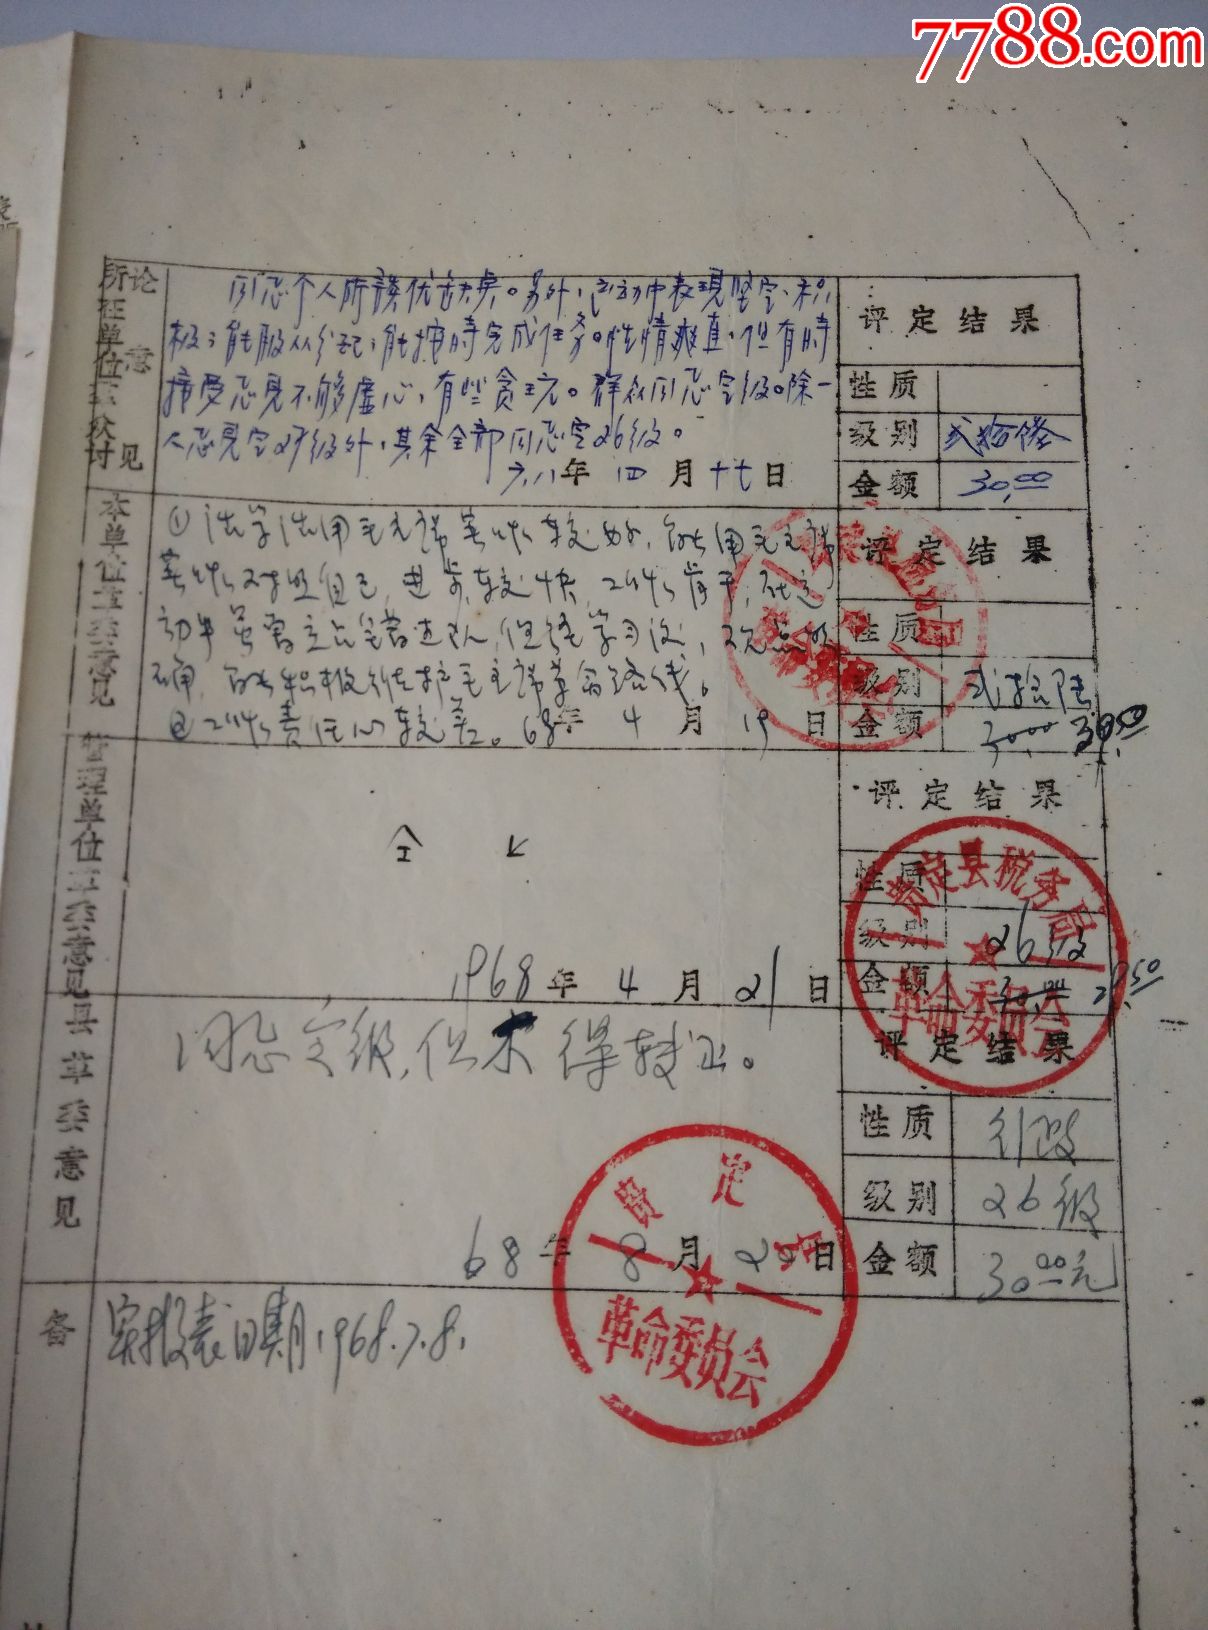 7788.com
所在单位群众讨论意见
同意个人所谈优缺点。另外,运动中表现坚定、积
极;能服从分配;能按时完成任务。性情爽直,但有时
接受意见不够虚心,有些贪玩。群众同意定级。除一
人意见定27级外,其余全部同意定26级。
六八年 四 月 十七 日
评定结果
性质
级别 贰拾陆
金额 30.00
本单位革委意见
①活学活用毛主席著作较好,能用毛主席
著作对照自己,进步较快,工作肯干,在运
动中虽曾
确,能积极捍卫毛主席革命路线。
②工作责任心较差。68年 4 月 19 日
评定结果
性质
级别 贰拾陆
金额 30.00 29.50
管理单位革委意见
仝上
1968年 4 月 21 日
评定结果
性质
级别 26级
金额 30.00 29.50
贵定县税务局
革命委员会
县革委意见
同意定级,但未得转正。
68年 8 月 20 日
评定结果
性质 行政
级别 26级
金额 30.00元
贵定县
革命委员会
备
实报表日期,1968.7.8.